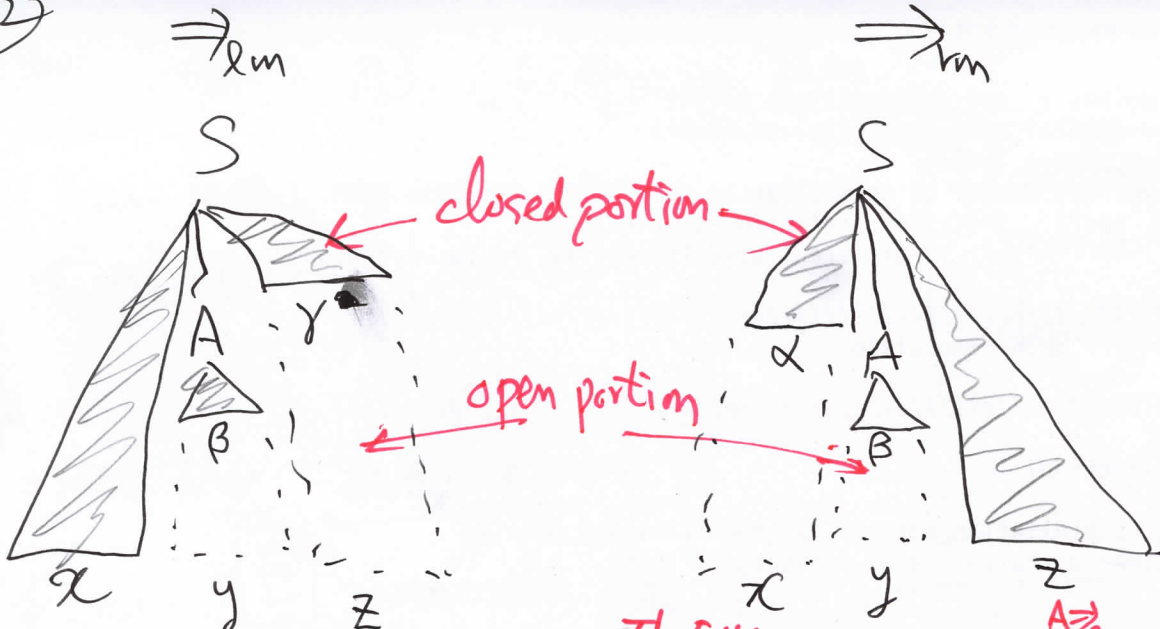 2)
⇒lm ⇒rm
S S
closed portion
γ α
A A
open portion
β β
x y z x y z
A⇒